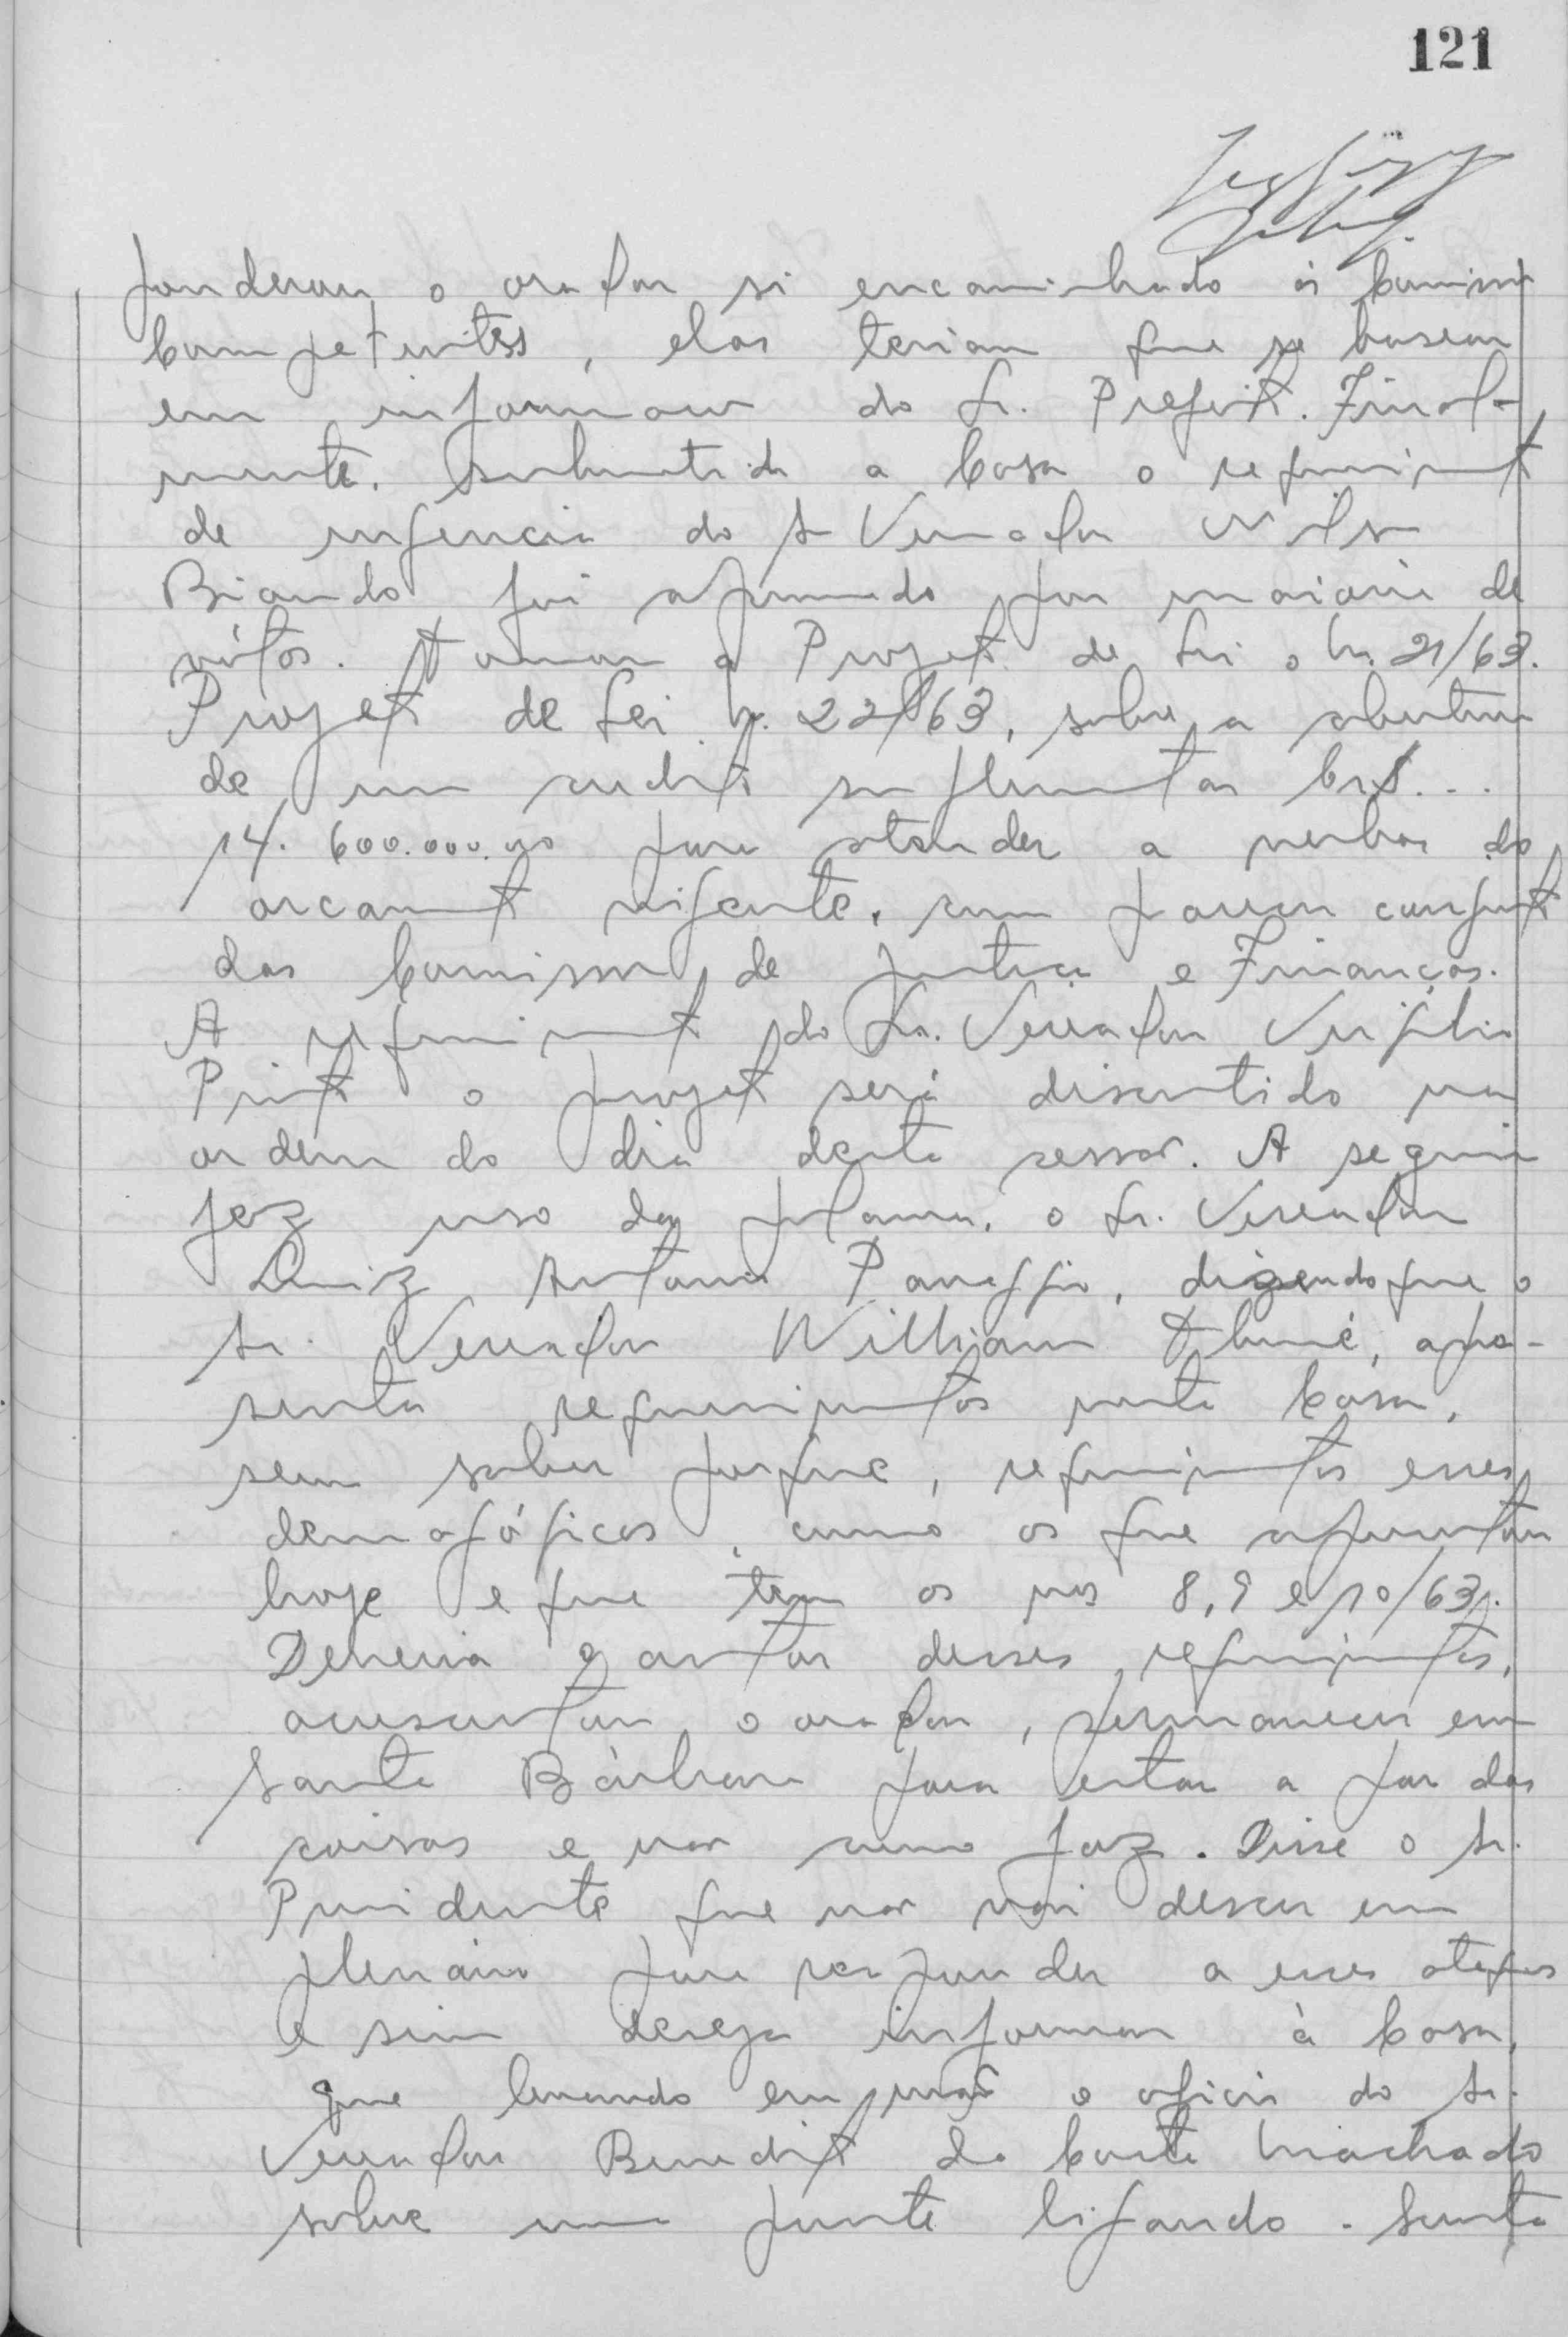 121
ponderou o orador si encaminhado ás Comissões
Competentes, elas teriam que se basear
em informações do Sr. Prefeito. Final-
mente, submetido a Casa o requerimento
de urgencia do Sr Vereador Nilson
Biondo foi aprovado por maioria de
vótos. Tomou o Projeto de Lei o nr. 21/63.
Projeto de Lei nr. 22/63, sobre a abertura
de um credito suplementar Cr$...
14.600.000,00 para atender a verbas do
orçamento vigente, com parecer conjunto
das Comissões de Justiça e Finanças.
A requerimento do Sr. Vereador Virgilio
Pinto o projeto será discutido na
ordem do dia desta sessão. A seguir
fez uso da palavra, o Sr. Vereador
Luiz Antonio Panaggio, dizendo que o
Sr. Vereador William Thomé, apre-
senta requerimentos nesta Casa,
sem saber porque, requerimentos esses
demagógicos, como os que apresentou
hoje e que tem os nos 8, 9 e 10/63.
Deveria o autor desses requerimentos,
acrescentou o orador, permanecer em
Santa Bárbara para estar a par das
coisas e não como faz. Disse o Sr.
Presidente que não vai descer em
plenário para responder a esses ataques
e sim deseja informar à Casa,
que levando em mãos o oficio do Sr.
Vereador Benedito da Costa Machado
sobre uma ponte ligando Santa